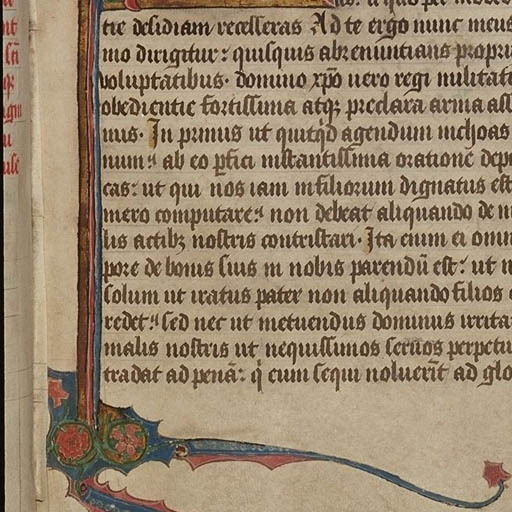 tie desidiam recesseras Ad te ergo nunc meus
mo dirigitur: quisquis abrenuntians propri
voluptatibus. domino xp̄o uero regi militatu
obedientie fortissima atqʒ preclara arma ass
mis. In primis ut quitq̇d agendum inchoas
num: ab eo p̄fici instantissima oratione depo
cas: ut qui nos iam in filiorum dignatus est
mero computare: non debeat aliquando de m
lis actibʒ nostris contristari. Ita enim ei omni
pore de bonis suis in nobis parendū est: ut n
solum ut iratus pater non aliquando filios e
redet: sed nec ut metuendus dominus irrita
malis nostris ut nequissimos seruos perpetu
tradat ad penā: q̇ eum sequi noluerīt ad glo